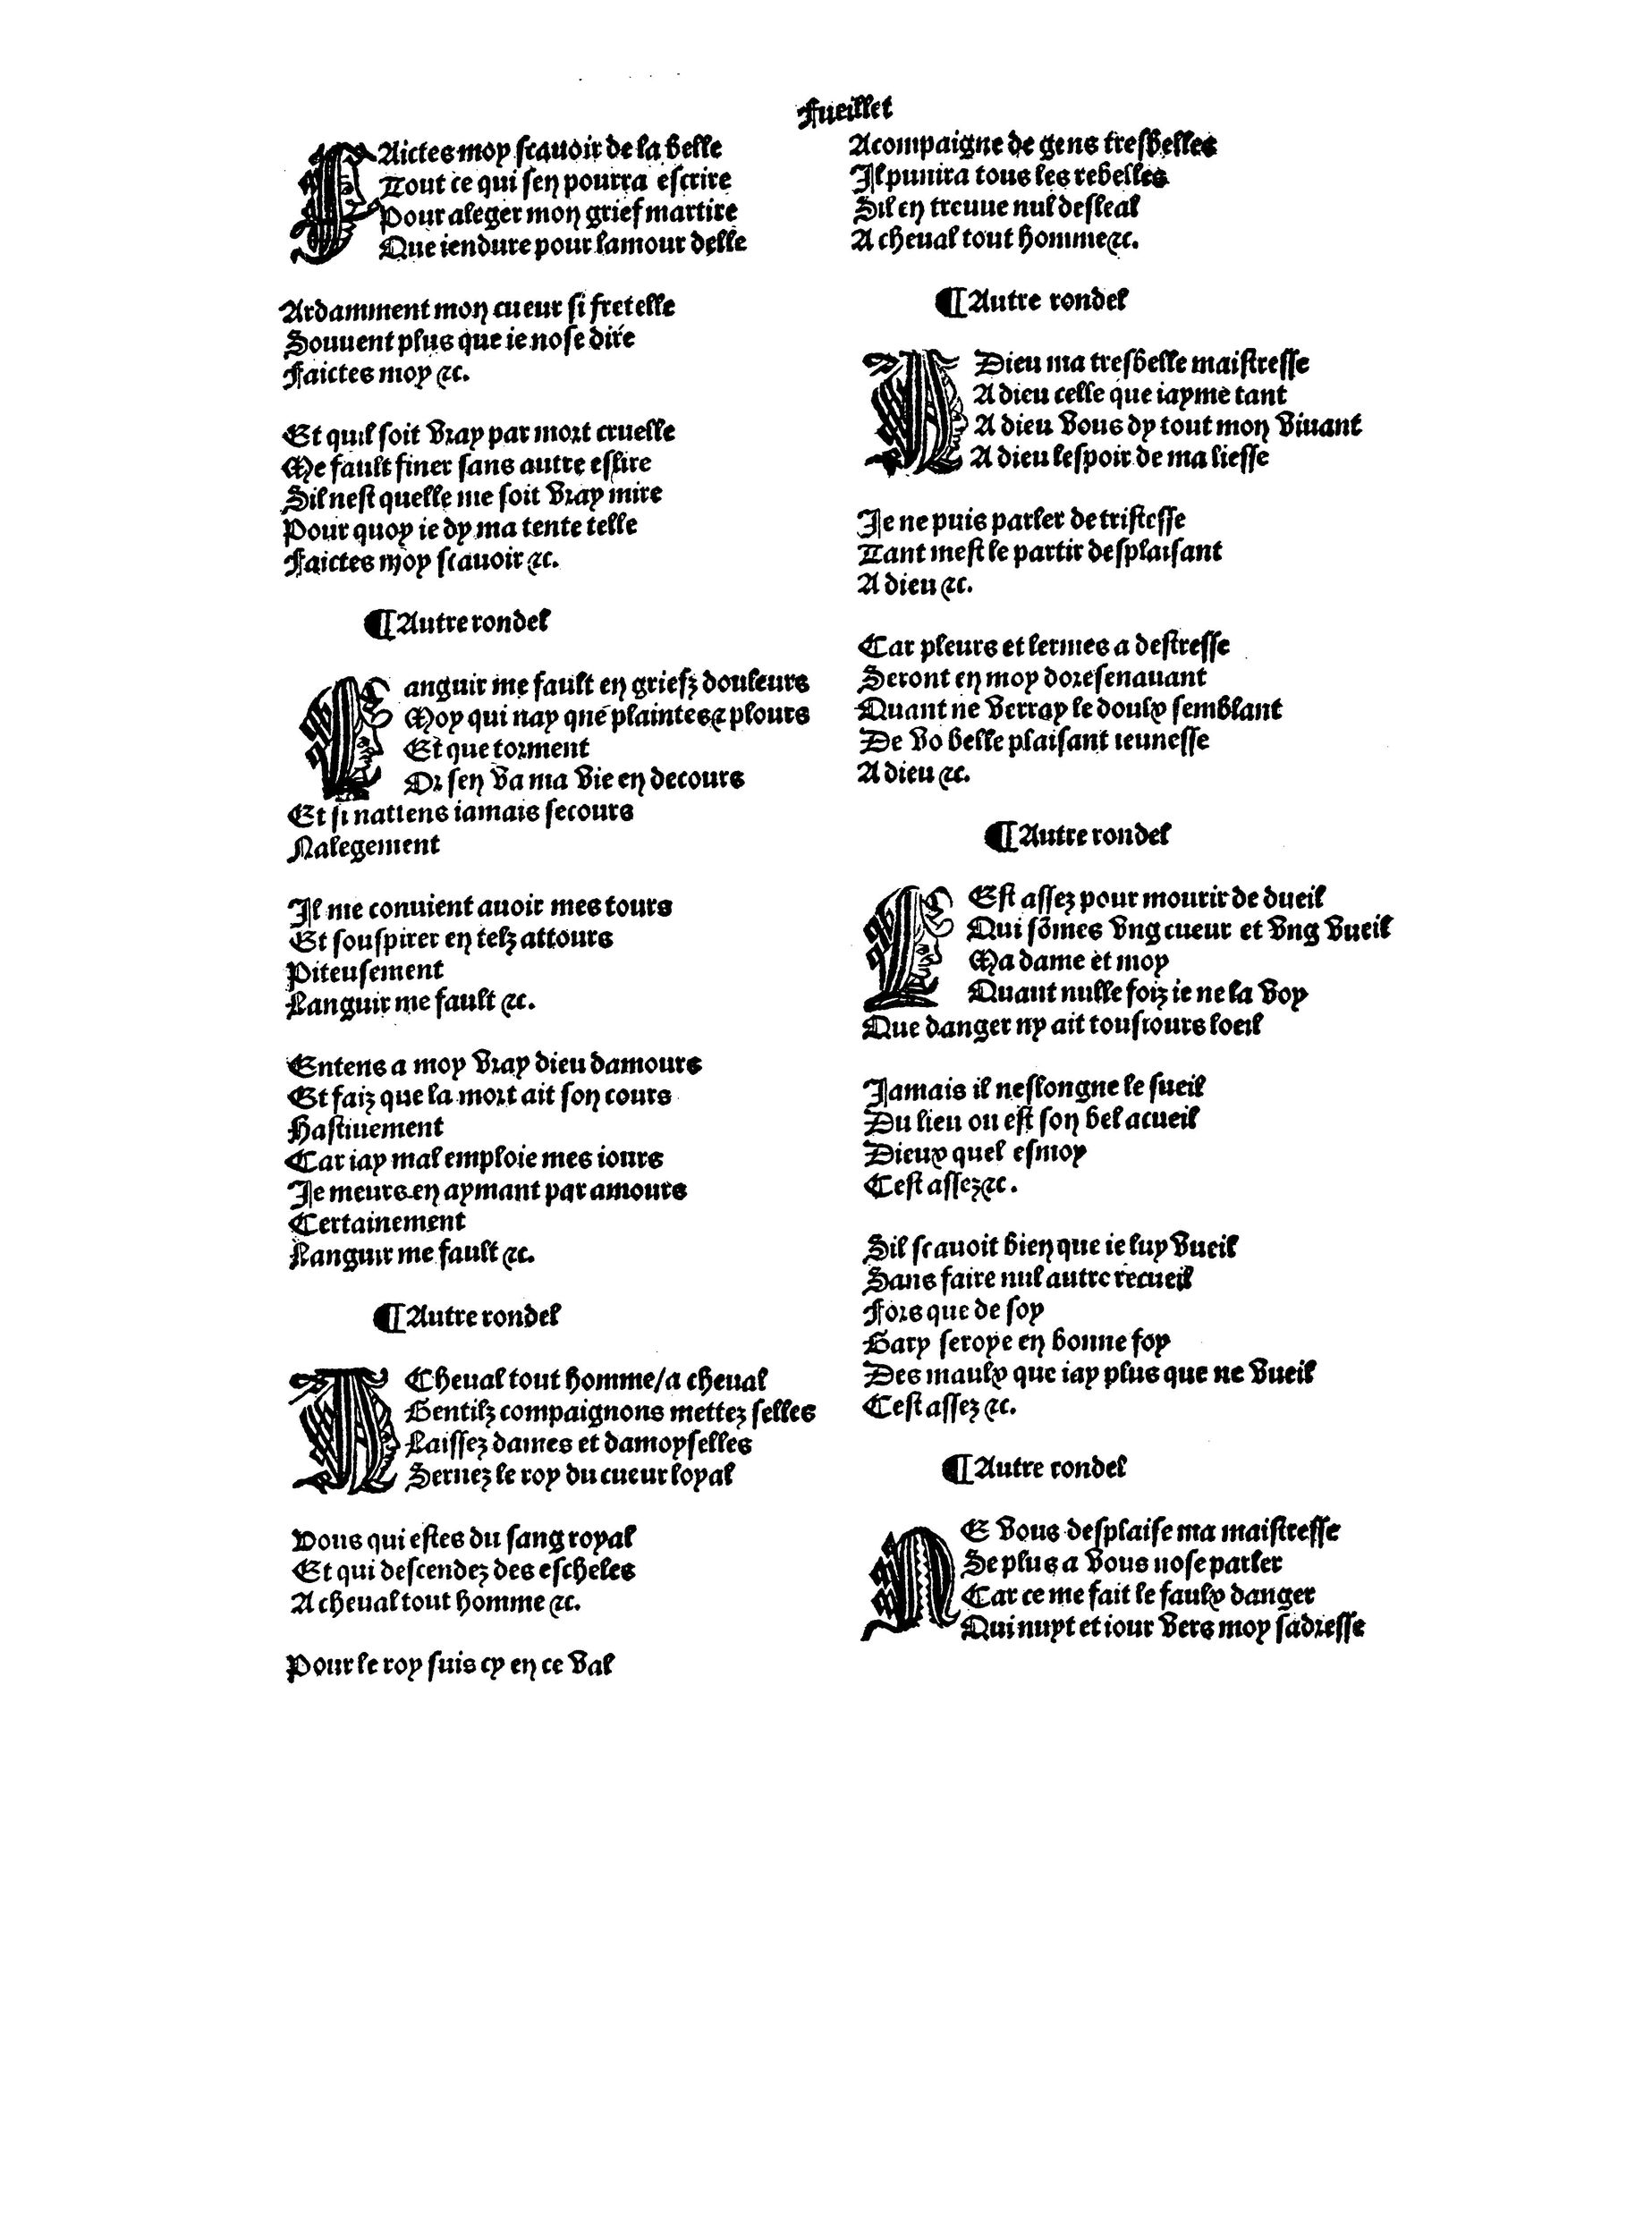 Fueillet
FAictes moy scauoir de la belle
Tout ce qui sen pourra escrire
Pour aleger mon grief martire
Que iendure pour lamour delle
Ardamment mon cueur si fretelle
Souuent plus que ie nose dire
Faictes moy &c.
Et quil soit vray par mort cruelle
Me fault finer sans autre eslire
Sil nest quelle me soit vray mire
Pour quoy ie dy ma tente telle
Faictes moy scauoir &c.
¶Autre rondel
Languir me fault en griefz douleurs
Moy qui nay que plaintes & plours
Et que torment
Or sen va ma vie en decours
Et si nattens iamais secours
Nalegement
Il me conuient auoir mes tours
Et souspirer en telz attours
Piteusement
Languir me fault &c.
Entens a moy vray dieu damours
Et faiz que la mort ait son cours
Hastiuement
Car iay mal emploie mes iours
Je meurs en aymant par amours
Certainement
Languir me fault &c.
¶Autre rondel
ACheual tout homme/a cheual
Gentilz compaignons mettez selles
Laissez dames et damoyselles
Seruez le roy du cueur loyal
Vous qui estes du sang royal
Et qui descendez des escheles
A cheual tout homme &c.
Pour le roy suis cy en ce val
Acompaigne de gens tresbelles
Il punira tous les rebelles
Sil en treuue nul desleal
A cheual tout homme &c.
¶Autre rondel
ADieu ma tresbelle maistresse
A dieu celle que iayme tant
A dieu vous dy tout mon viuant
A dieu lespoir de ma liesse
Je ne puis parler de tristesse
Tant mest le partir desplaisant
A dieu &c.
Car pleurs et lermes a destresse
Seront en moy doresenauant
Quant ne verray le doulx semblant
De vo belle plaisant ieunesse
A dieu &c.
¶Autre rondel
CEst assez pour mourir de dueil
Qui sõmes vng cueur et vng vueil
Ma dame et moy
Quant nulle foiz ie ne la voy
Que danger ny ait tousiours loeil
Jamais il neslongne le sueil
Du lieu ou est son bel acueil
Dieux quel esmoy
Cest assez &c.
Sil scauoit bien que ie luy vueil
Sans faire nul autre recueil
Fors que de soy
Gary seroye en bonne foy
Des maulx que iay plus que ne vueil
Cest assez &c.
¶Autre rondel
NE vous desplaise ma maistresse
Se plus a vous nose parler
Car ce me fait le faulx danger
Qui nuyt et iour vers moy sadresse